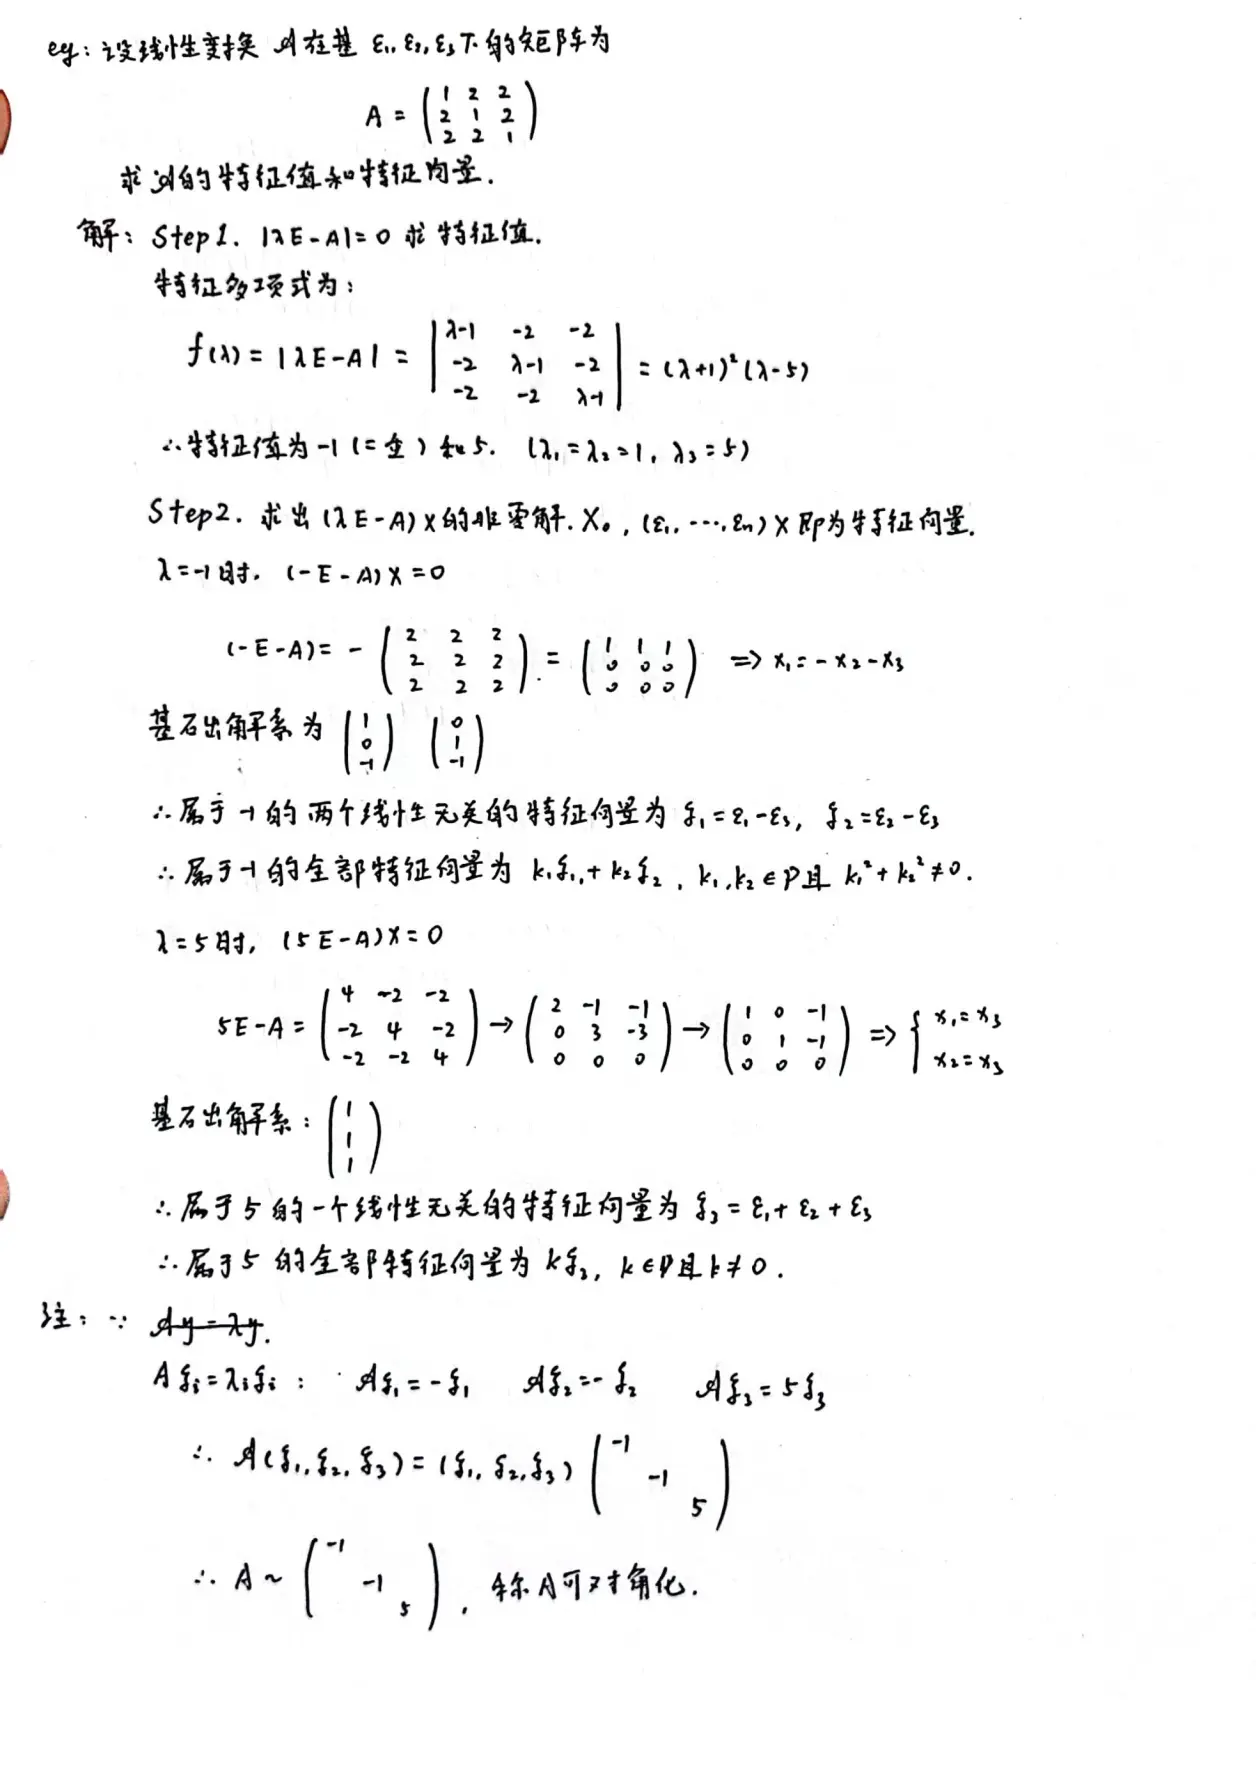 eg: 设线性变换 𝒜在基 ε₁, ε₂, ε₃下的矩阵为
A = ( 1 2 2
2 1 2
2 2 1 )
求𝒜的特征值和特征向量.
解: Step1. |λE-A|=0 求特征值.
特征多项式为:
f(λ) = |λE-A| = | λ-1 -2 -2
-2 λ-1 -2
-2 -2 λ-1 | = (λ+1)²(λ-5)
∴特征值为-1(二重)和5. (λ₁=λ₂=1, λ₃=5)
Step2. 求出(λE-A)X的非零解.X₀, (ε₁, ⋯, εn)X即为特征向量.
λ=-1时. (-E-A)X=0
(-E-A)= - ( 2 2 2
2 2 2
2 2 2 ) = ( 1 1 1
0 0 0
0 0 0 ) ⇒ x₁=-x₂-x₃
基础解系为 ( 1
0
-1 ) ( 0
1
-1 )
∴属于-1的两个线性无关的特征向量为 ξ₁=ε₁-ε₃, ξ₂=ε₂-ε₃
∴属于-1的全部特征向量为 k₁ξ₁+k₂ξ₂, k₁,k₂∈P且 k₁²+k₂²≠0.
λ=5时, (5E-A)X=0
5E-A = ( 4 -2 -2
-2 4 -2
-2 -2 4 ) → ( 2 -1 -1
0 3 -3
0 0 0 ) → ( 1 0 -1
0 1 -1
0 0 0 ) ⇒ { x₁=x₃
x₂=x₃
基础解系: ( 1
1
1 )
∴属于5的一个线性无关的特征向量为 ξ₃=ε₁+ε₂+ε₃
∴属于5的全部特征向量为 kξ₃, k∈P且k≠0.
注: ∵ 𝒜y=λy.
Aξᵢ=λᵢξᵢ: 𝒜ξ₁=-ξ₁ 𝒜ξ₂=-ξ₂ 𝒜ξ₃=5ξ₃
∴ 𝒜(ξ₁, ξ₂, ξ₃)=(ξ₁, ξ₂, ξ₃) ( -1
-1
5 )
∴ A ~ ( -1
-1
5 ), 称A可对角化.